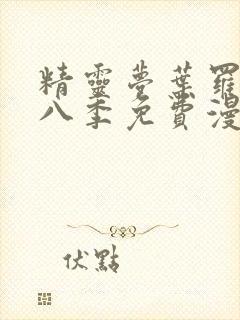 精靈夢葉羅
八季免費漫
伏點